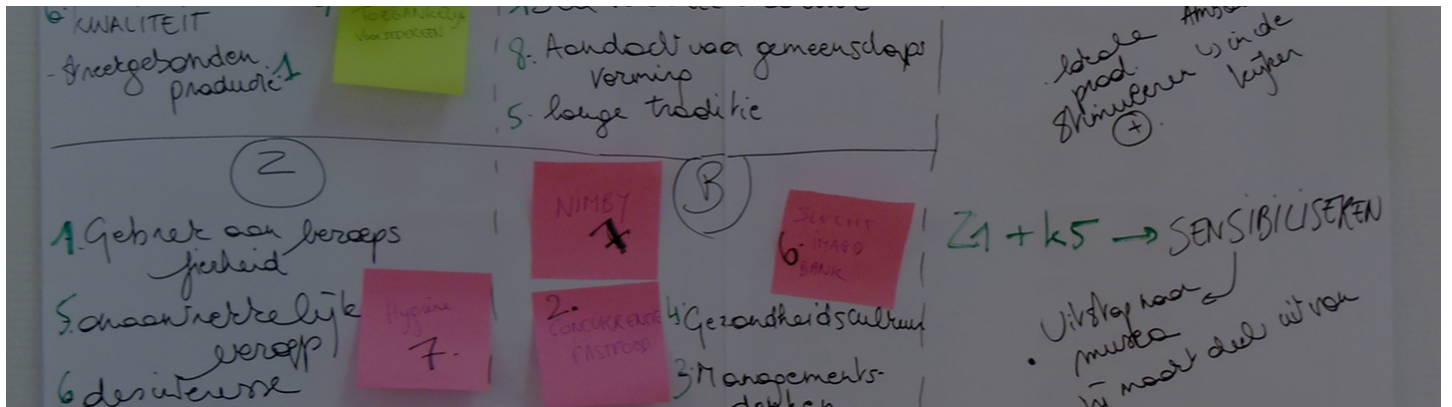 6.
KWALITEIT
- streekgebonden 1
producten
TOEGANKELIJK
VOOR IEDEREEN
8. Aandacht voor gemeenschaps
vorming
5. lange traditie
lokale
prod.
stimuleren ↳ in de
kijker
+
Z
1. Gebrek aan beroeps
fierheid
5. onaantrekkelijk
beroep
6 desinteresse
Hygiëne
7.
B
NIMBY
1
2.
CONCURRENTIE
FASTFOOD
SLECHT
IMAGO
6.
BANK
4 Gezondheidscultuur
3. Managements-
Z1 + k5 → SENSIBILISEREN
Uitstap naar
• musea
maakt deel uit van